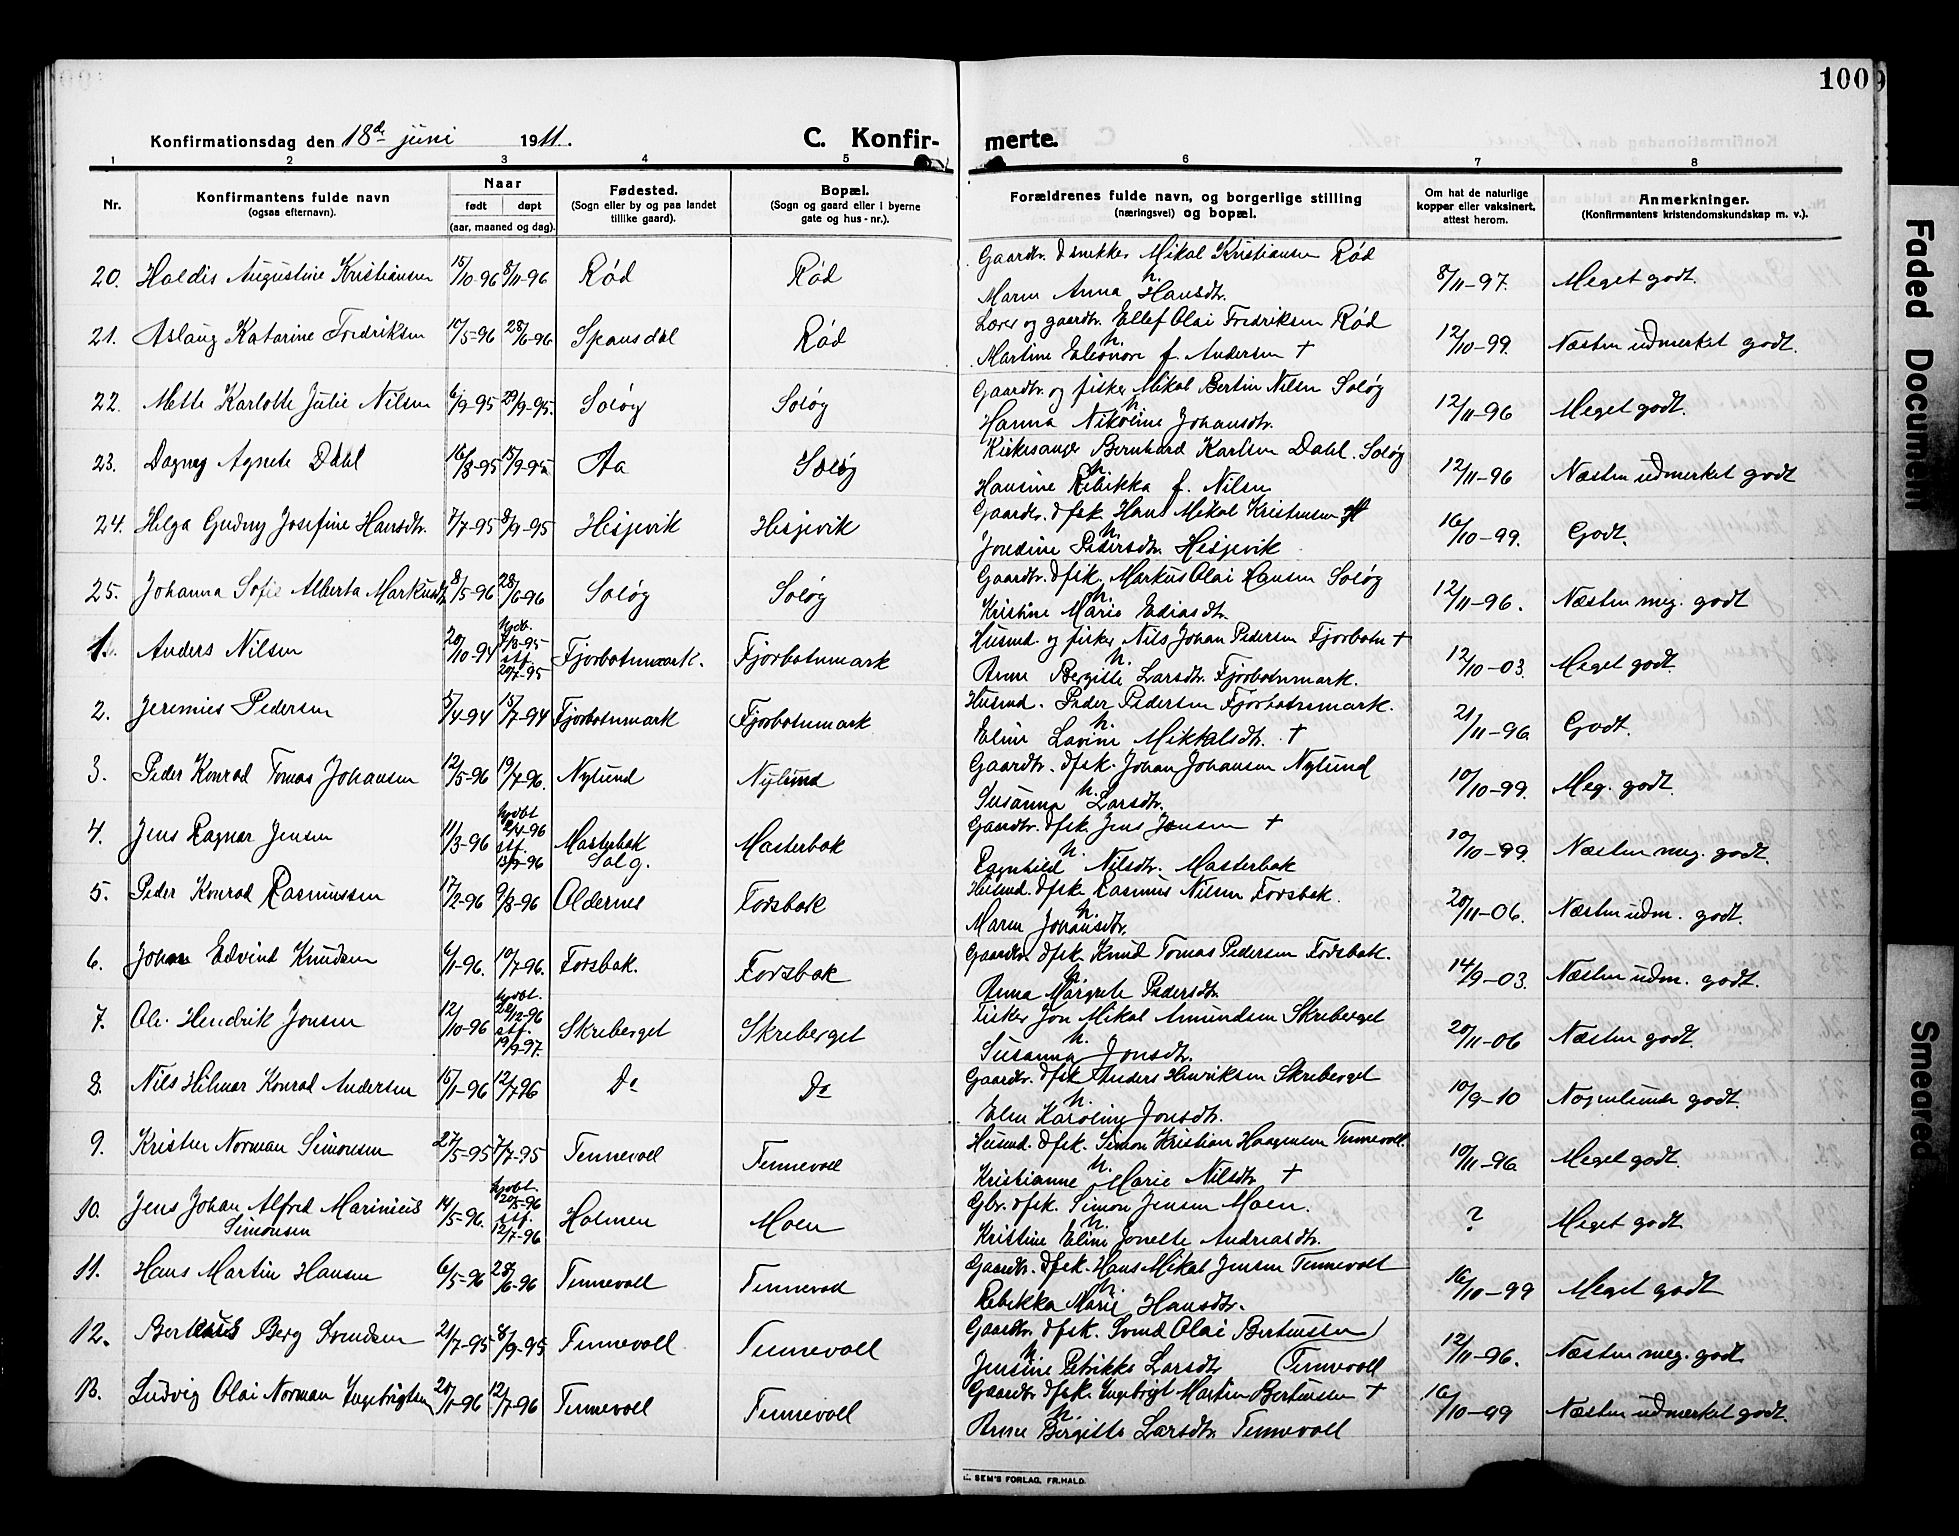 100
Konfirmationsdag den 18de juni 1911.
C. Konfirmerte.
1 2 3 4 5 6 7 8
Nr.
Konfirmantens fulde navn
(ogsaa efternavn).
Naar
født døpt
(aar, maaned og dag).
Fødested.
(Sogn eller by og paa landet
tillike gaard).
Bopæl.
(Sogn og gaard eller i byerne
gate og hus-nr.).
Forældrenes fulde navn, og borgerlige stilling
(næringsvei) og bopæl.
Om hat de naturlige
kopper eller vaksinert,
attest herom.
Anmerkninger.
(Konfirmantens kristendomskundskap m. v.).
20. Haldis Augustine Kristiansen 15/10-96 8/11-96 Rød Rød Gaardbr. & snikker Mikal Kristiansen Rød
h. Maren Anna Hansdtr. 8/11-97. Meget godt.
21. Aslaug Katarine Fredriksen 10/5-96 28/6-96 Spansdal Rød Lærer og gaardbr. Ellef Olai Fredriksen Rød
h. Martine Eleonore f. Andersen † 12/10-99. Næsten udmerket godt.
22. Mette Karlotte Julie Nilsen 6/9-95 29/9-95. Soløy Soløy Gaardbr. og fisker Mikal Bertin Nilsen Soløy
h. Hanna Nikoline Johansdtr. 12/11-96 Meget godt.
23. Dagny Agnete Dahl 16/8-95 15/9-95 Aa Soløy Kirkesanger Bernhard Karlsen Dahl. Soløy
h. Hansine Rebikka f. Nilsen 12/11-96 Næsten udmerket godt
24. Helga Gudny Josefine Hansdtr. 7/7-95 8/9-95 Hesjevik Hesjevik Gaardbr. & fisk. Hans Mikal Kristensen
h. Jordine Pedersdtr. Hesjevik 16/10-99. Godt.
25. Johanna Sofie Alberta Markusdtr. 8/5-96 28/6-96 Soløy Soløy Gaardbr. & fisk. Markus Olai Hansen Soløy
h. Kristine Marie Ediasdtr. 12/11-96. Næsten meg. godt
1. Anders Nilsen 20/10-94 hjdb. 7/3-95 stf. 20/7-95 Fjorbotnmark. Fjorbotnmark Husmd. og fisker Nils Johan Pedersen Fjorbotn †
h. Anne Bergitte Larsdtr. Fjorbotnmark. 12/10-03. Meget godt.
2. Jeremies Pedersen 5/4-94 15/7-94 Fjorbotnmark Fjorbotnmark Husmd. Peder Pedersen Fjorbotnmark.
h. Eline Lavine Mikkalsdtr. † 21/11-96. Godt.
3. Peder Konrad Tomas Johansen 12/5-96 19/7-96. Nylund Nylund Gaardbr. & fsk. Johan Johansen Nylund
h. Susanna Larsdtr. 10/10-99. Meg. godt.
4. Jens Ragnar Jensen 11/3-96 hjdbt 2/4-96 stf. 13/9-96 Masterbak Salg. Masterbak Gaardbr. & fsk. Jens Jensen †
h. Ragnhild Nilsdtr. Masterbak 10/10-99. Næsten meg. godt.
5. Peder Konrad Rasmussen 17/2-96 9/8-96 Oldernes Forsbak Husmd. & fsk. Rasmus Nilsen Forsbak.
h. Maren Johansdtr. 20/11-06. Næsten udm. godt.
6. Johan Edvind Knudsen 6/1-96. 10/7-96. Forsbak. Forsbak Gaardbr. & fsk. Knud Tomas Pedersen Forsbak.
h. Anna Margrete Pedersdtr. 14/9-03. Næsten udm. godt.
7. Ole Hendrik Jonsen 12/10-96 hjdbt. 20/12-96 stf. 19/9-97. Skreberget Skreberget Fisker Jon Mikal Amundsen Skreberget
h. Susanna Jonsdtr. 20/11-06 Næsten godt.
8. Nils Hilmar Konrad Andersen 15/1-96 12/7-96 Do Do Gaardbr. & fsk Anders Henriksen Skreberget
h. Elen Karoline Jonsdtr. 10/9-10 Nogenlunde godt.
9. Kristen Norman Simonsen 27/5-95 7/7-95 Tennevoll Tennevoll Husmd. & fsk. Simon Kristian Haagensen Tennevoll.
h. Kristianne Marie Nilsdtr. † 10/11-96. Meget godt.
10. Jens Johan Alfred Marinius
Simonsen 14/5-96. hjdbt. 20/5-96 stf. 12/7-96 Holmen Moen Gbr. & fsk. Simon Jensen Moen.
h. Kristine Eline Jonette Andreasdtr. ? Meget godt
11. Hans Martin Hansen 6/5-96 28/6-96 Tennevoll Tennevoll Gaardbr. & fsk. Hans Mikal Jensen Tennevoll
h. Rebekka Marie Hansdtr. 16/10-99 Meget godt
12. Berteus Berg Svendsen 21/7-95 8/9-95 Tennevoll Tennevoll Gaardbr. & fsk. Svend Olai Berteussen
h. Jensine Petrikke Larsdtr (Tennevoll 12/11-96. Næsten meg. godt
13. Ludvig Olai Norman Ingebrigtsen 20/1-96 12/7-96 Tennevoll Tennevoll Gaardbr. & fsk. Ingebrigt Martin Berteussen †
h. Anne Bergitte Larsdtr. Tennevoll 16/10-99 Næsten udmerket godt.
SEM'S FORLAG, FR.HALD.
Faded Document
Smeared